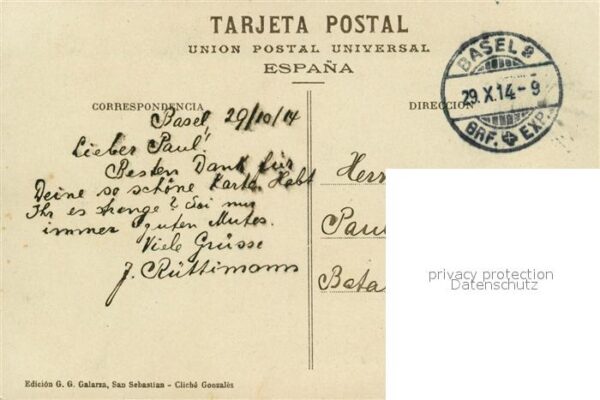 TARJETA POSTAL
UNION POSTAL UNIVERSAL
ESPAÑA
CORRESPONDENCIA
DIRECCIÓN
BASEL 2
29.X.14-9
BRF. EXP.
Basel, 29/10/14
Lieber Paul!
Besten Dank für
Deine so schöne Karte. Habt
Ihr es strenge? Sei nur
immer guten Mutes.
Viele Grüsse
J. Rüttimann
Herr
Paul
Bata
privacy protection
Datenschutz
Edición G. G. Galarza, San Sebastian - Cliché Gonzalès